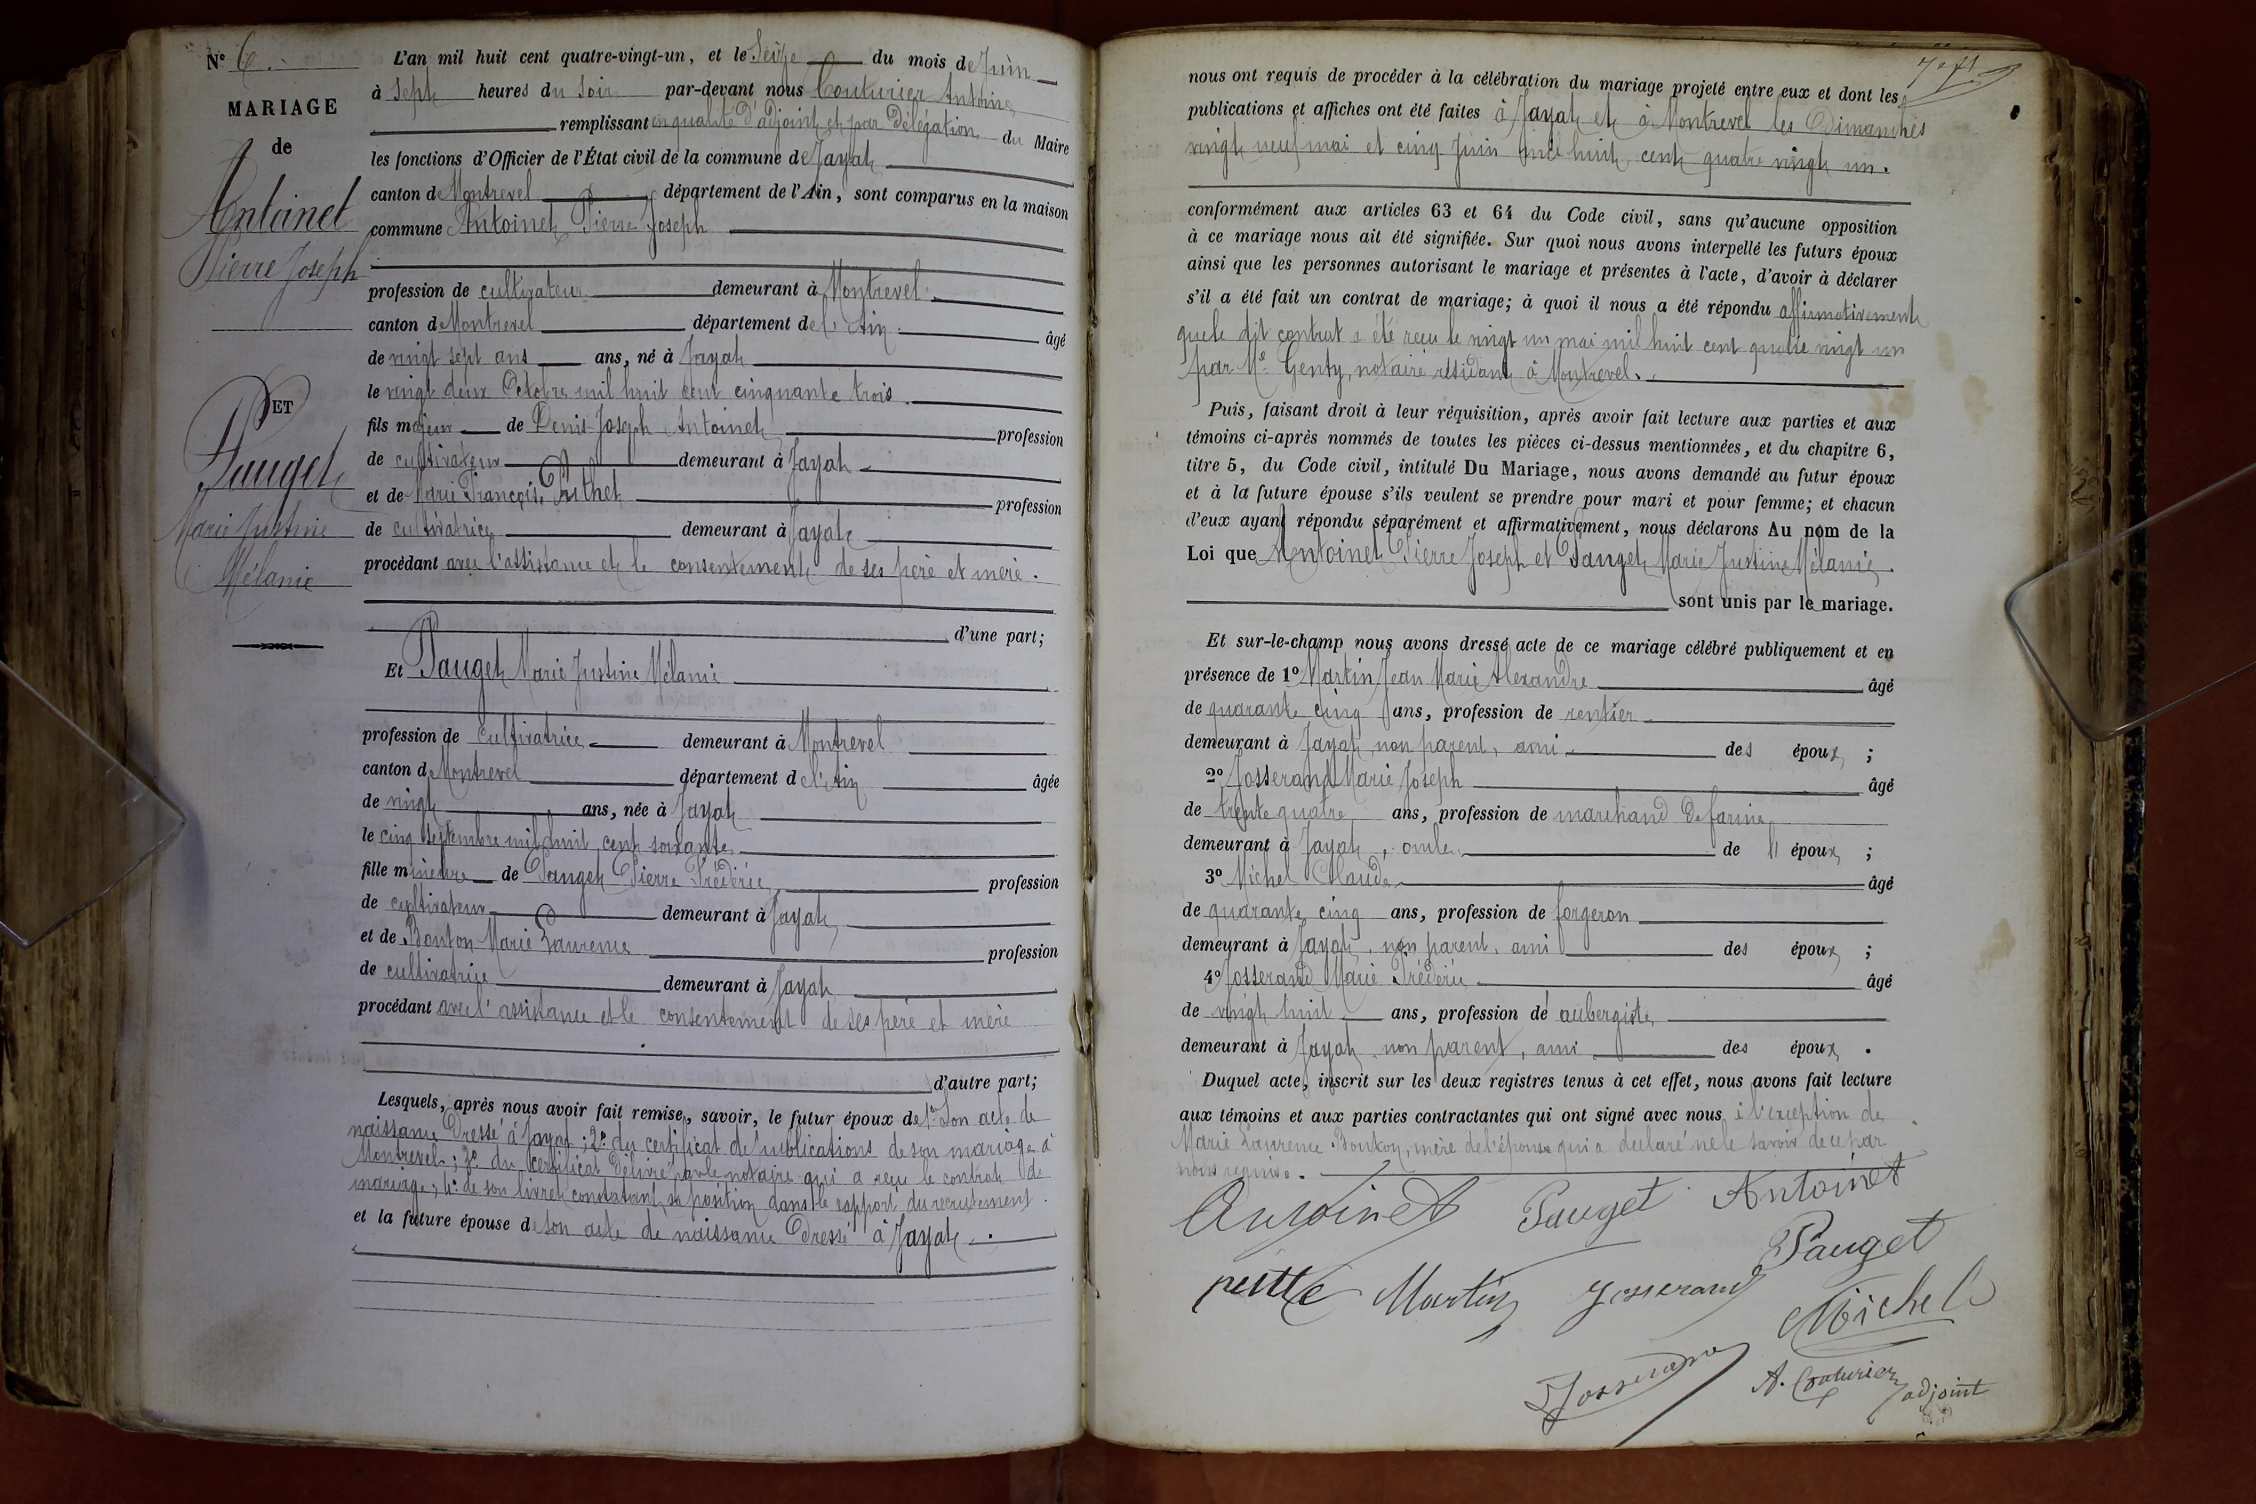 N° 6.
MARIAGE
de
Antoinet
Pierre Joseph
ET
Pauget
Marie Justine
Mélanie
L'an mil huit cent quatre-vingt-un, et le Seize du mois de Juin
à Sept heures du Soir par-devant nous Couturier Antoine
remplissant en qualité d'adjoint et par Délégation du Maire
les fonctions d'Officier de l'État civil de la commune de Jayat
canton de Montrevel département de l'Ain, sont comparus en la maison
commune Antoinet Pierre Joseph
profession de cultivateur demeurant à Montrevel
canton de Montrevel département de l'Ain âgé
de vingt sept ans ans, né à Jayat
le vingt deux Octobre mil huit cent cinquante trois.
fils majeur de Denis Joseph Antoinet profession
de cultivateur demeurant à Jayat
et de Marie Françoise profession
de cultivatrice demeurant à Jayat
procédant avec l'assistance et le consentement de ses père et mère.
d'une part;
Et Pauget Marie Justine Mélanie
profession de cultivatrice demeurant à Montrevel
canton de Montrevel département de l'Ain âgée
de vingt ans, née à Jayat
le cinq Septembre mil huit cent soixante
fille mineure de Pauget Pierre Frédéric profession
de cultivateur demeurant à Jayat
et de Bonton Marie Laurence profession
de cultivatrice demeurant à Jayat
procédant avec l'assistance et le consentement de ses père et mère
d'autre part;
Lesquels, après nous avoir fait remise, savoir, le futur époux de 1° Son acte de
naissance Dressé à Jayat; 2° du certificat de publications de son mariage à
Montrevel; 3° du certificat Délivré par le notaire qui a reçu le contrat de
mariage; 4° de son livret constatant sa position dans le rapport du recrutement.
et la future épouse de Son acte de naissance Dressé à Jayat.
nous ont requis de procéder à la célébration du mariage projeté entre eux et dont les
publications et affiches ont été faites à Jayat et à Montrevel les Dimanches
vingt neuf mai et cinq Juin mil huit cent quatre vingt un.
conformément aux articles 63 et 64 du Code civil, sans qu'aucune opposition
à ce mariage nous ait été signifiée. Sur quoi nous avons interpellé les futurs époux
ainsi que les personnes autorisant le mariage et présentes à l'acte, d'avoir à déclarer
s'il a été fait un contrat de mariage; à quoi il nous a été répondu affirmativement
que le dit contrat a été reçu le vingt un mai mil huit cent quatre vingt un
par Me Genty, notaire résidant à Montrevel.
Puis, faisant droit à leur réquisition, après avoir fait lecture aux parties et aux
témoins ci-après nommés de toutes les pièces ci-dessus mentionnées, et du chapitre 6,
titre 5, du Code civil, intitulé Du Mariage, nous avons demandé au futur époux
et à la future épouse s'ils veulent se prendre pour mari et pour femme; et chacun
d'eux ayant répondu séparément et affirmativement, nous déclarons Au nom de la
Loi que Antoinet Pierre Joseph et Pauget Marie Justine Mélanie
sont unis par le mariage.
Et sur-le-champ nous avons dressé acte de ce mariage célébré publiquement et en
présence de 1° Martin Jean Marie Alexandre âgé
de quarante cinq ans, profession de rentier
demeurant à Jayat, non parent, ami des époux;
2° Josserand Marie Joseph âgé
de trente quatre ans, profession de marchand de farine
demeurant à Jayat, oncle de l'époux;
3° Michel Claude âgé
de quarante cinq ans, profession de forgeron
demeurant à Jayat, non parent, ami des époux;
4° Josserand Marie Frédéric âgé
de vingt huit ans, profession de aubergiste
demeurant à Jayat, non parent, ami des époux.
Duquel acte, inscrit sur les deux registres tenus à cet effet, nous avons fait lecture
aux témoins et aux parties contractantes qui ont signé avec nous à l'exception de
Marie Laurence Bonton, mère de l'épouse qui a déclaré ne le savoir de ce par
nous requise.
Antoinet Pauget Antoinet
Pauget
Martin Josserand
Michel
Josserand
A. Couturier adjoint